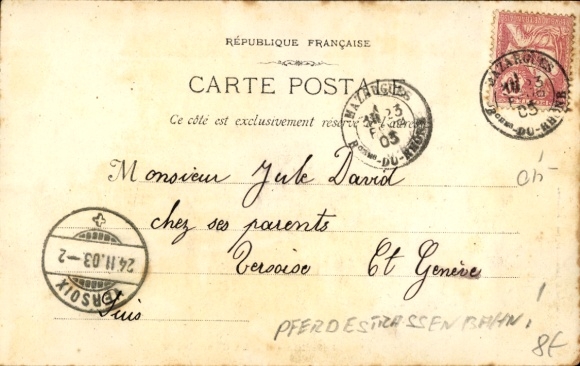 RÉPUBLIQUE FRANÇAISE
CARTE POSTALE
Ce côté est exclusivement réservé à l'adresse
MAZARGUES
23
FEVR
03
BCHES-DU-RHONE
MAZARGUES
23
03
BCHES-DU-RHONE
Monsieur Jule David
chez ses parents
Versoise Ct Genève
Suis
VERSOIX
24.II.03.-2
PFERDESTRASSENBAHN!
8€